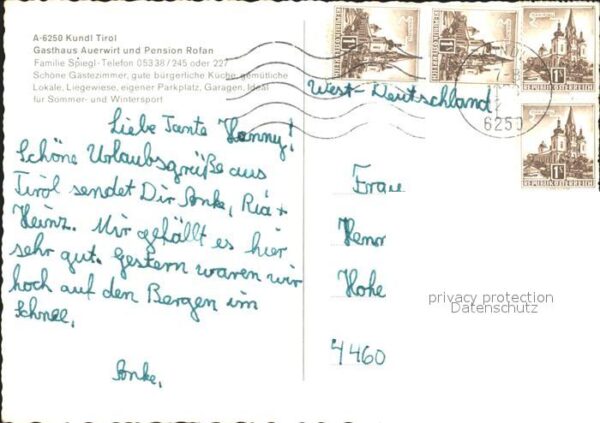 A-6250 Kundl Tirol
Gasthaus Auerwirt und Pension Rofan
Familie Spiegl-Telefon 05338/245 oder 227
Schöne Gästezimmer, gute bürgerliche Küche, gemütliche
Lokale, Liegewiese, eigener Parkplatz, Garagen, Ideal
für Sommer- und Wintersport
Liebe Tante Hanny!
Schöne Urlaubsgrüße aus
Tirol sendet Dir Anke, Ria +
Heinz. Mir gefällt es hier
sehr gut. Gestern waren wir
hoch auf den Bergen im
Schnee.
Anke.
West-Deutschland
6250
REPUBLIK ÖSTERREICH
REPUBLIK ÖSTERREICH
REPUBLIK ÖSTERREICH
REPUBLIK ÖSTERREICH
Frau
Henr
Hohe
4460
privacy protection
Datenschutz